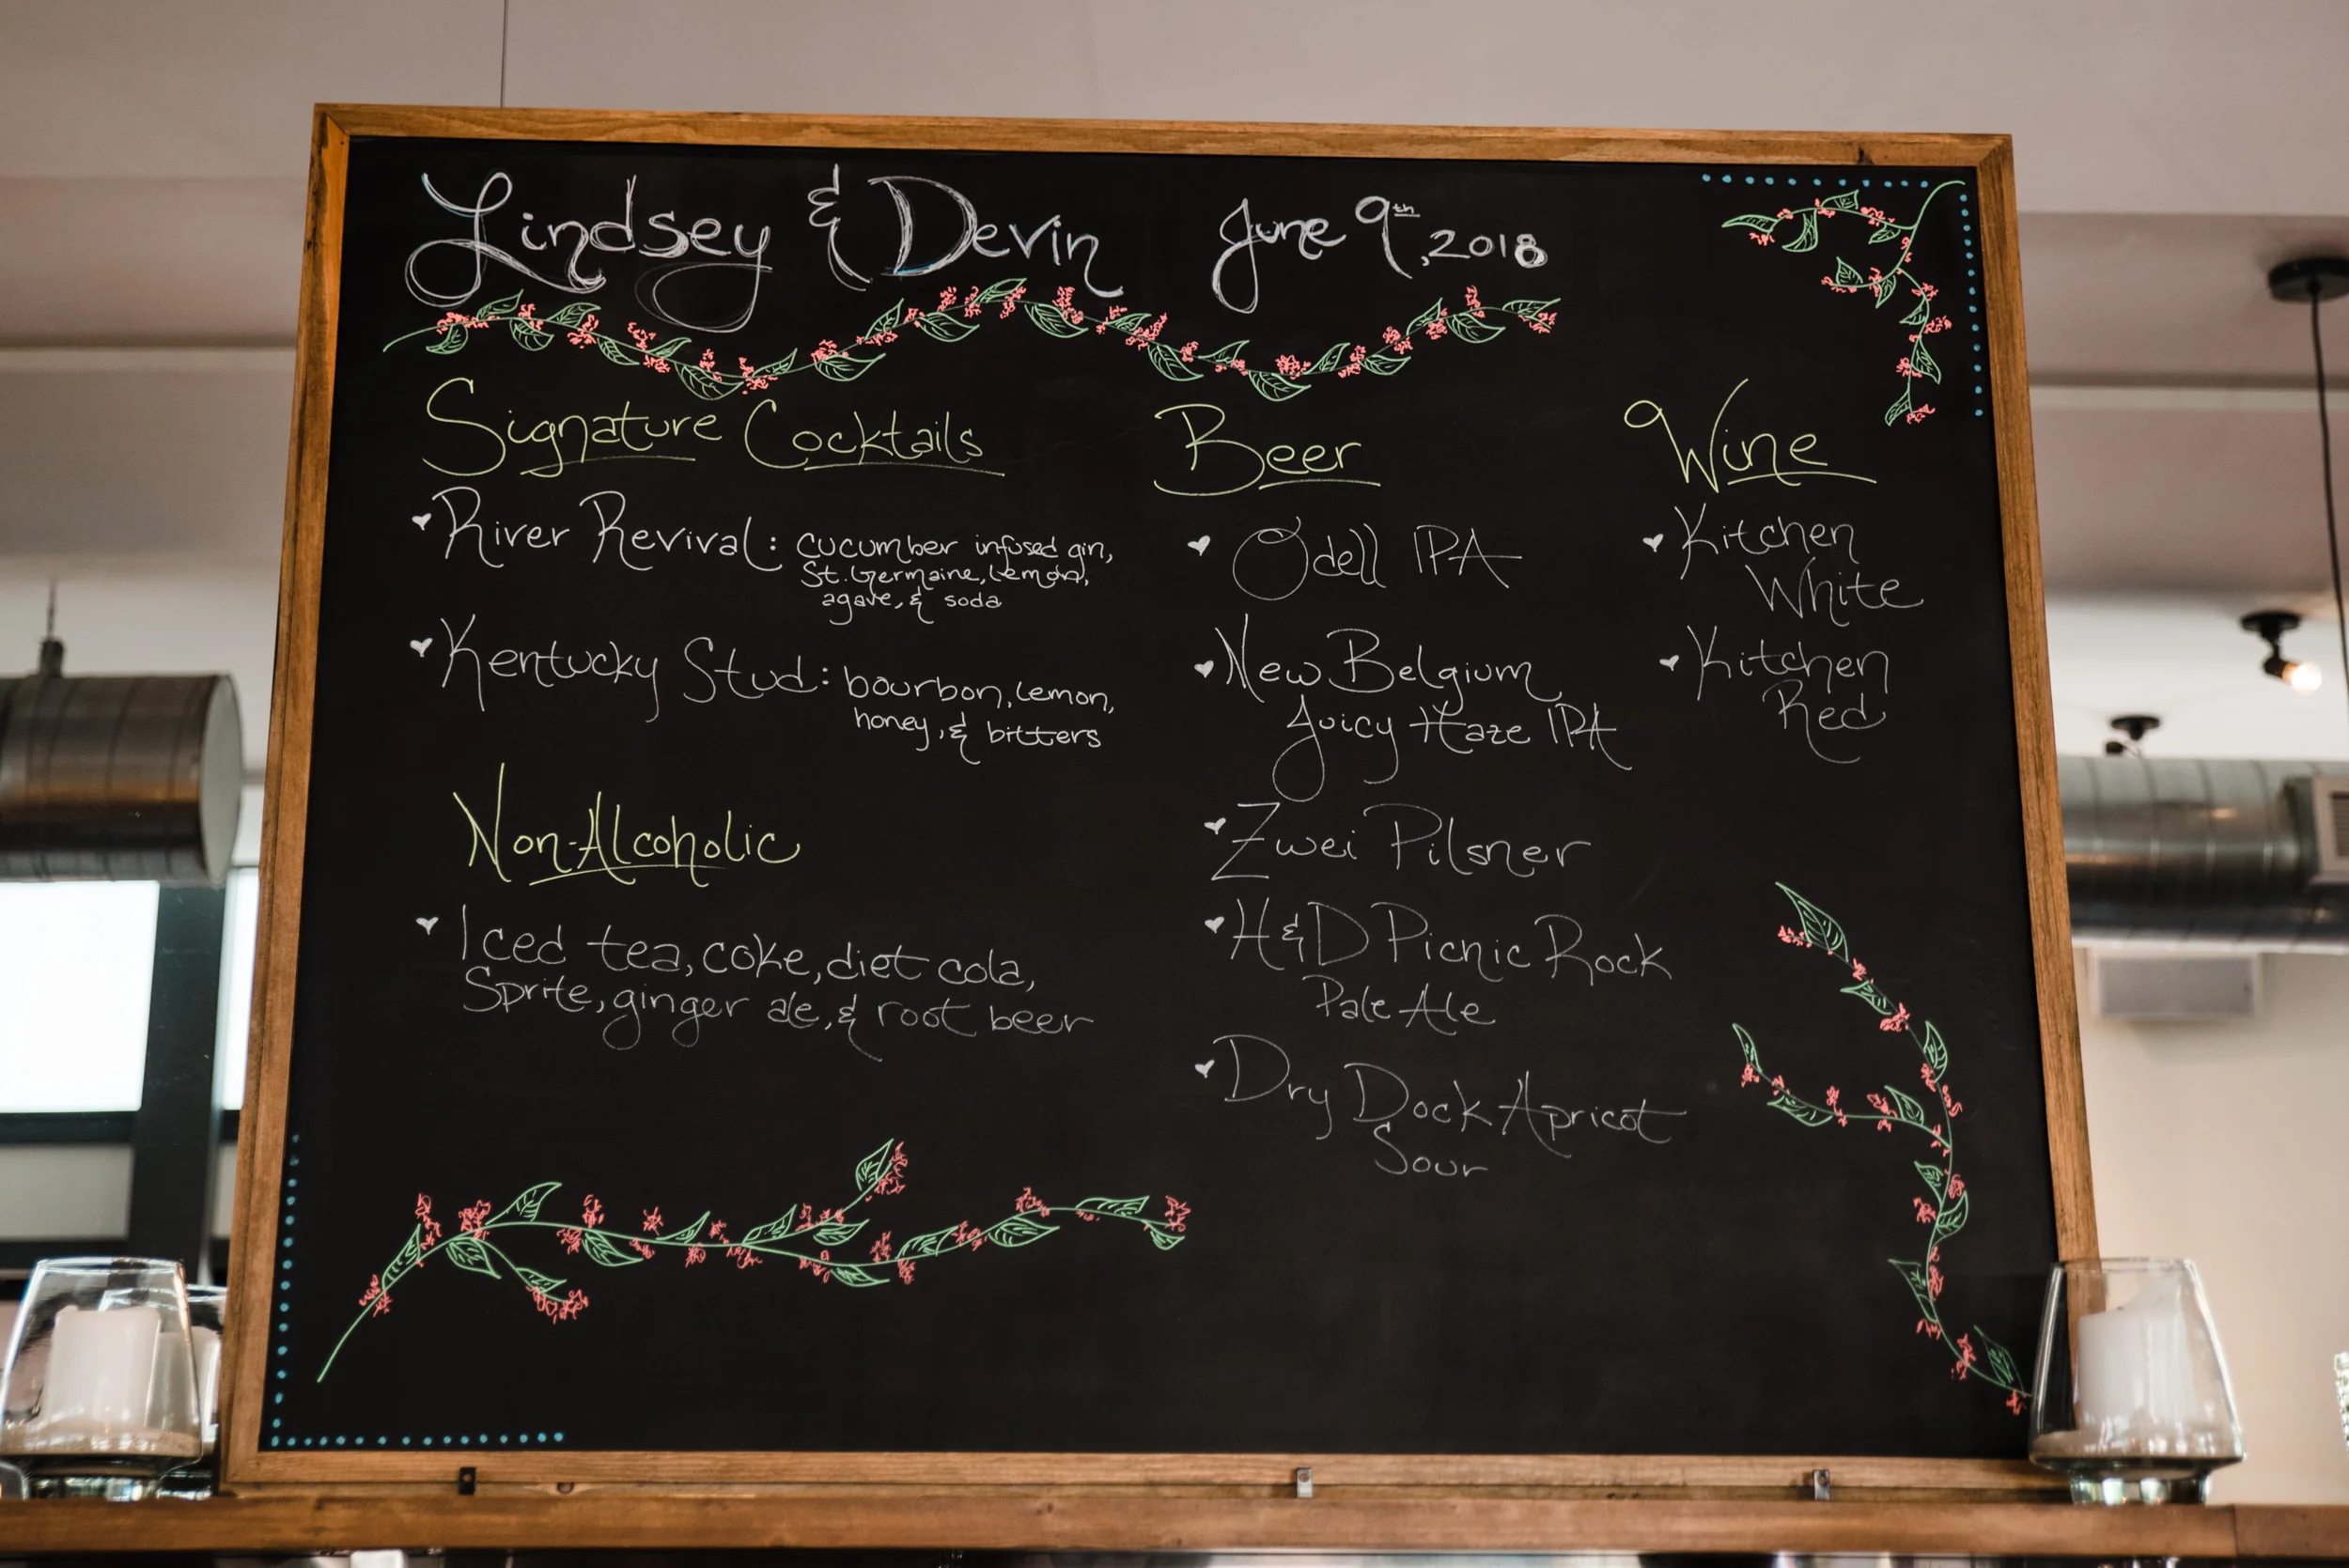 Lindsey & Devin June 9th, 2018
Signature Cocktails
River Revival: cucumber infused gin,
St. Germaine, Lemon,
agave, & soda
Kentucky Stud: bourbon, lemon,
honey, & bitters
Non-Alcoholic
Iced tea, coke, diet cola,
Sprite, ginger ale, & root beer
Beer
Odell IPA
New Belgium
Juicy Haze IPA
Zwei Pilsner
H&D Picnic Rock
Pale Ale
Dry Dock Apricot
Sour
Wine
Kitchen
White
Kitchen
Red